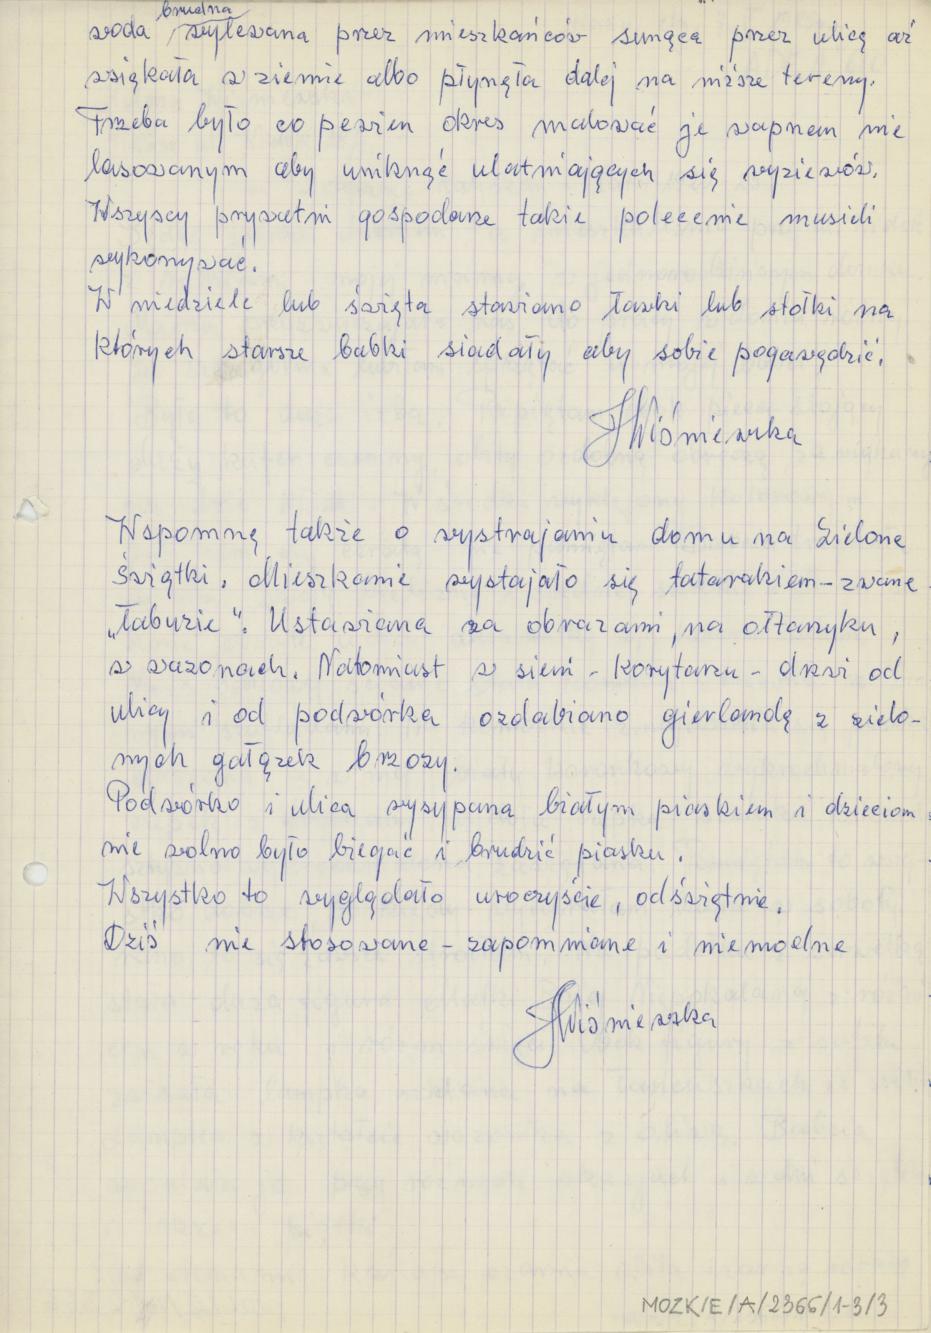 brudna
woda wylewana przez mieszkańców sunąca przez ulicę aż
wsiąkała w ziemie albo płynęła dalej na niższe tereny.
Trzeba było co pewien okres malować je wapnem nie
lasowanym aby uniknąć ulatniających się wyziewów.
Wszyscy prywatni gospodarze takie polecenie musieli
wykonywać.
W niedziele lub święta stawiano ławki lub stołki na
których starsze babki siadały aby sobie pogawędzić.
HWiśniewska
Wspomnę także o wystrajaniu domu na Zielone
Świątki. Mieszkanie wystajało się tatarakiem – zwane
„łabuzie". Ustawiana za obrazami, na ołtarzyku,
w wazonach. Natomiast w sień – korytarzu – drzwi od
ulicy i od podwórka ozdabiano gierlandą z zielo-
nych gałązek brzozy.
Podwórko i ulica wysypana białym piaskiem i dzieciom
nie wolno było biegać i brudzić piasku.
Wszystko to wyglądało uroczyście, odświętnie.
Dziś nie stosowane – zapomniane i niemodne
HWiśniewska
MOZK/E/A/2366/1-3/3